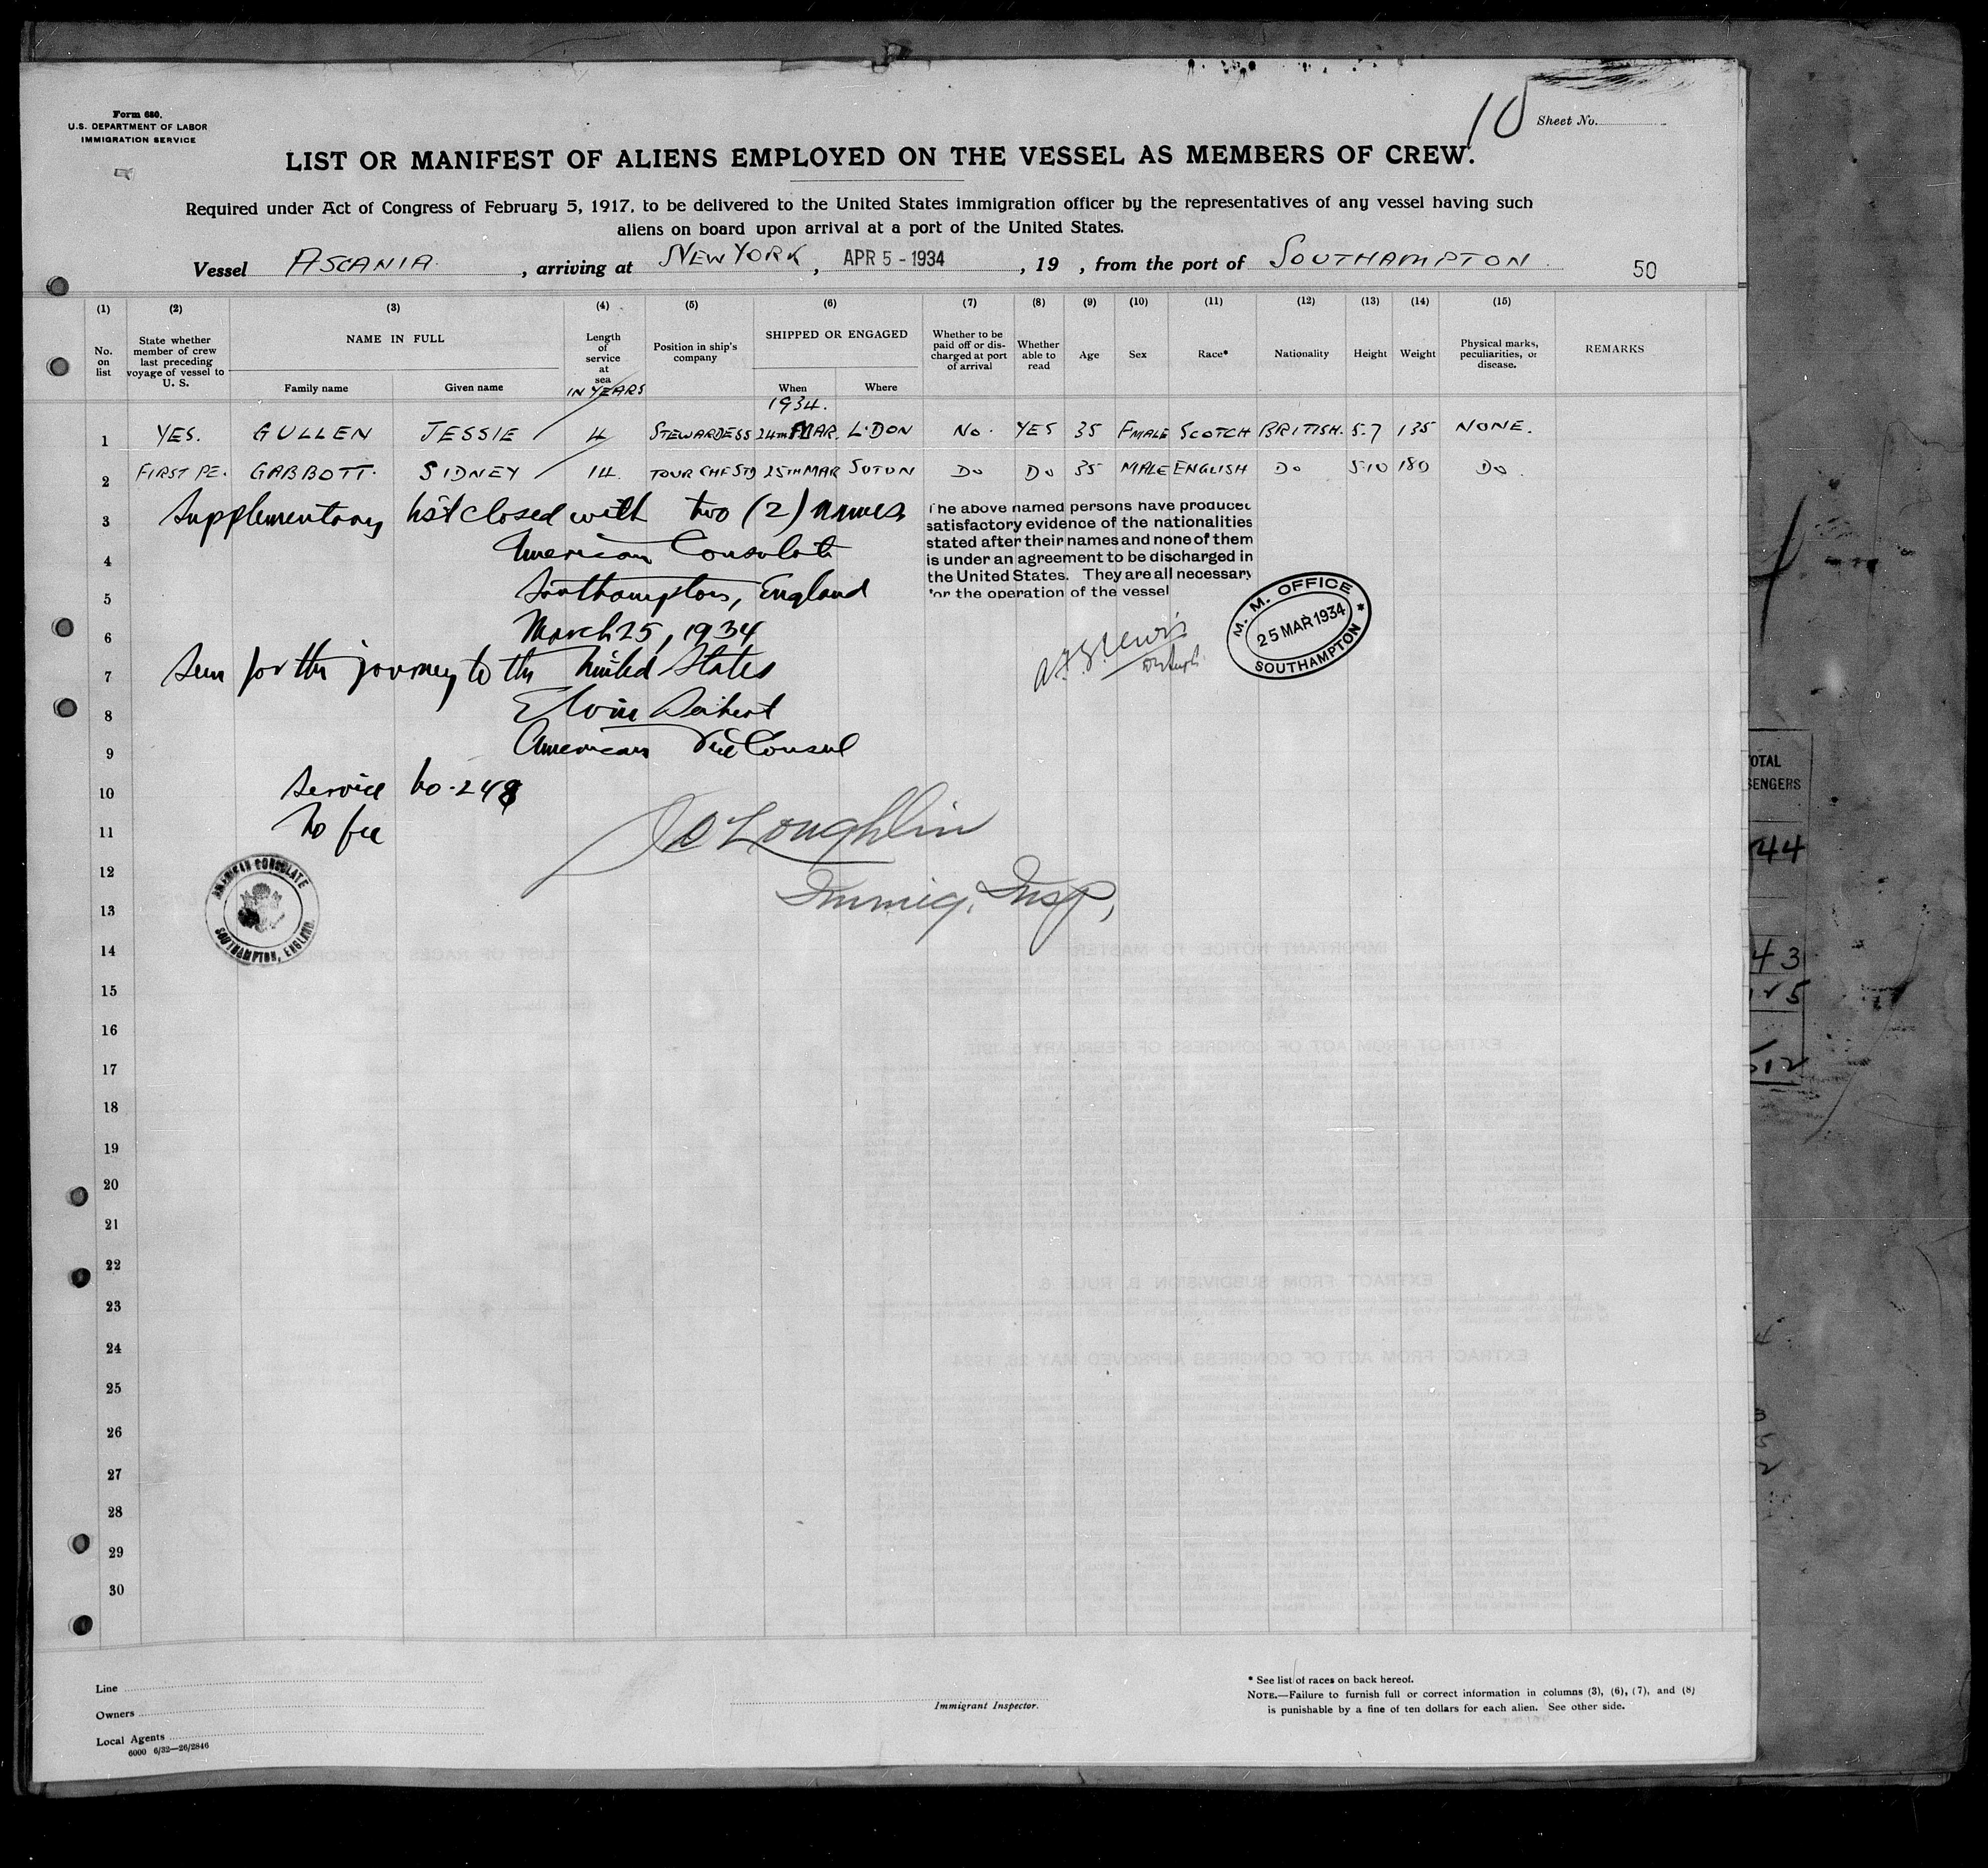 Form 680.
U.S. DEPARTMENT OF LABOR
IMMIGRATION SERVICE
10
Sheet No.
LIST OR MANIFEST OF ALIENS EMPLOYED ON THE VESSEL AS MEMBERS OF CREW.
Required under Act of Congress of February 5, 1917, to be delivered to the United States immigration officer by the representatives of any vessel having such
aliens on board upon arrival at a port of the United States.
Vessel ASCANIA, arriving at NEW YORK, APR 5 - 1934, 19 , from the port of SOUTHAMPTON
50
(1) (2) (3) (4) (5) (6) (7) (8) (9) (10) (11) (12) (13) (14) (15)
No. on list
State whether member of crew last preceding voyage of vessel to U. S.
NAME IN FULL
Family name
Given name
Length of service at sea
IN YEARS
Position in ship's company
SHIPPED OR ENGAGED
When
Where
1934.
Whether to be paid off or discharged at port of arrival
Whether able to read
Age
Sex
Race*
Nationality
Height
Weight
Physical marks, peculiarities, or disease.
REMARKS
1 YES. GULLEN JESSIE 4 STEWARDESS 24TH MAR. L'DON NO. YES 35 FMALE SCOTCH BRITISH. 5.7 135 NONE.
2 FIRST PE. GABBOTT. SIDNEY 14. TOUR CHF STD 25TH MAR SOTON DO DO 35 MALE ENGLISH DO 5.10 180 DO.
3 Supplementary list closed with two (2) names
4 American Consulate
5 Southampton, England
6 March 25, 1934
7 Seen for the journey to the United States
8 Elvin Seibert
9 American Vice Consul
10 Service No. 248
11 No fee
12
13
14
15
16
17
18
19
20
21
22
23
24
25
26
27
28
29
30
The above named persons have produced
satisfactory evidence of the nationalities
stated after their names and none of them
is under an agreement to be discharged in
the United States. They are all necessary
for the operation of the vessel
M. M. OFFICE
25 MAR 1934
SOUTHAMPTON *
J O'Loughlin
Immig. Insp,
AMERICAN CONSULATE
SOUTHAMPTON, ENGLAND.
OTAL
SENGERS
44
43
125
512
Line
Owners
Local Agents
6000 6/32—26/2846
Immigrant Inspector.
* See list of races on back hereof.
NOTE.—Failure to furnish full or correct information in columns (3), (6), (7), and (8)
is punishable by a fine of ten dollars for each alien. See other side.